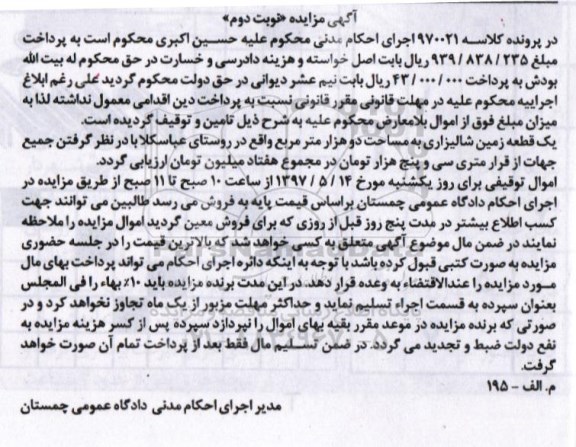 آگهی مزایده «نوبت دوم»
در پرونده کلاسه ۹۷۰۰۲۱ اجرای احکام مدنی محکوم علیه حسین اکبری محکوم است به پرداخت
مبلغ ۲۳۵ / ۸۳۸ / ۹۳۹ ریال بابت اصل خواسته و هزینه دادرسی و خسارت در حق محکوم له بیت الله
بودش به پرداخت ۰۰۰ / ۰۰۰ / ۴۳ ریال بابت نیم عشر دیوانی در حق دولت محکوم گردید علی رغم ابلاغ
اجراییه محکوم علیه در مهلت قانونی مقرر قانونی نسبت به پرداخت دین اقدامی معمول نداشته لذا به
میزان مبلغ فوق از اموال بلامعارض محکوم علیه به شرح ذیل تامین و توقیف گردیده است.
یک قطعه زمین شالیزاری به مساحت دو هزار متر مربع واقع در روستای عباسکلا با در نظر گرفتن جمیع
جهات از قرار متری سی و پنج هزار تومان در مجموع هفتاد میلیون تومان ارزیابی گردد.
اموال توقیفی برای روز یکشنبه مورخ ۱۴ / ۵ / ۱۳۹۷ از ساعت ۱۰ صبح تا ۱۱ صبح از طریق مزایده در
اجرای احکام دادگاه عمومی چمستان براساس قیمت پایه به فروش می رسد طالبین می توانند جهت
کسب اطلاع بیشتر در مدت پنج روز قبل از روزی که برای فروش معین گردید اموال مزایده را ملاحظه
نمایند در ضمن مال موضوع آگهی متعلق به کسی خواهد شد که بالاترین قیمت را در جلسه حضوری
مزایده به صورت کتبی قبول کرده باشد با توجه به اینکه دائره اجرای احکام می تواند پرداخت بهای مال
مورد مزایده را عندالاقتضاء به وعده قرار دهد. در این مدت برنده مزایده باید ۱۰٪ بهاء را فی المجلس
بعنوان سپرده به قسمت اجراء تسلیم نماید و حداکثر مهلت مزبور از یک ماه تجاوز نخواهد کرد و در
صورتی که برنده مزایده در موعد مقرر بقیه بهای اموال را نپردازد سپرده پس از کسر هزینه مزایده به
نفع دولت ضبط و تجدید می گردد در ضمن تسلیم مال فقط بعد از پرداخت تمام آن صورت خواهد
گرفت.
م. الف - ۱۹۵
مدیر اجرای احکام مدنی دادگاه عمومی چمستان